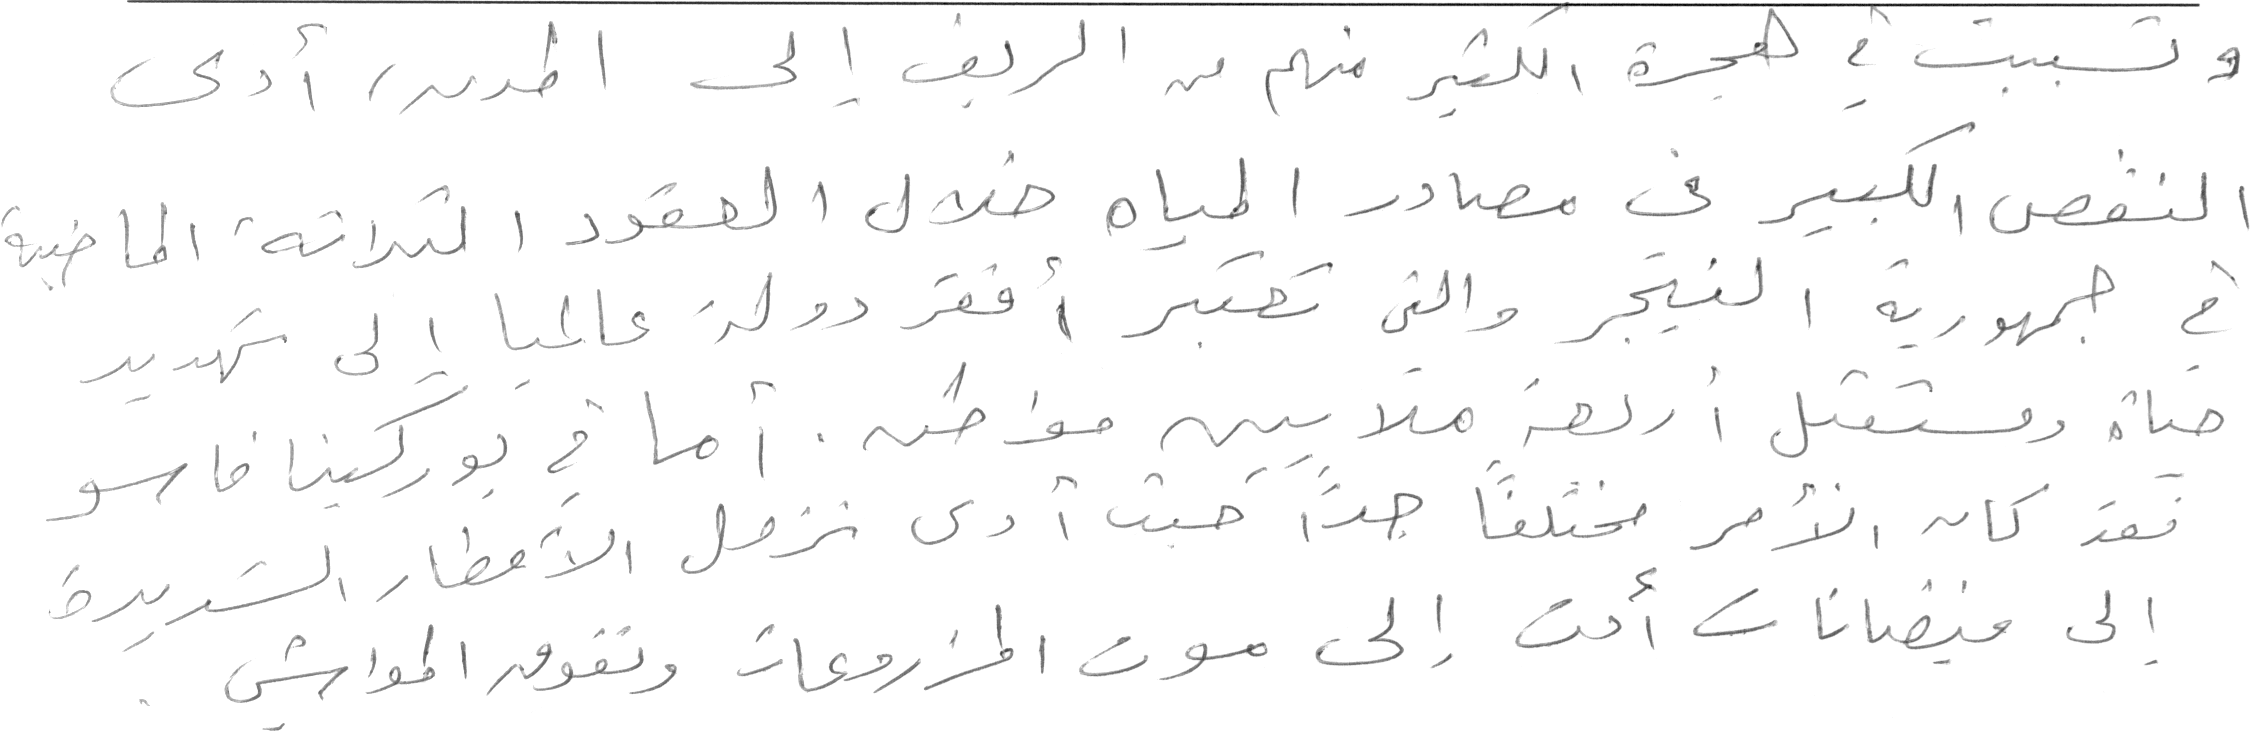 وتسببت في هجرة الكثير منهم من الريف إلى المدن، أدى
النقص الكبير في مصادر المياه خلال العقود الثلاثة الماضية
في جمهورية النيجر والتي تعتبر أفقر دولة عالميا إلى تهديد
حياة ومستقبل أربعة ملايين مواطن. أما في بوركينا فاسو
فقد كان الأمر مختلفًا جدًا حيث أدى نزول الأمطار الشديدة
إلى فيضانات أدت إلى موت المزروعات ونفوق المواشي.